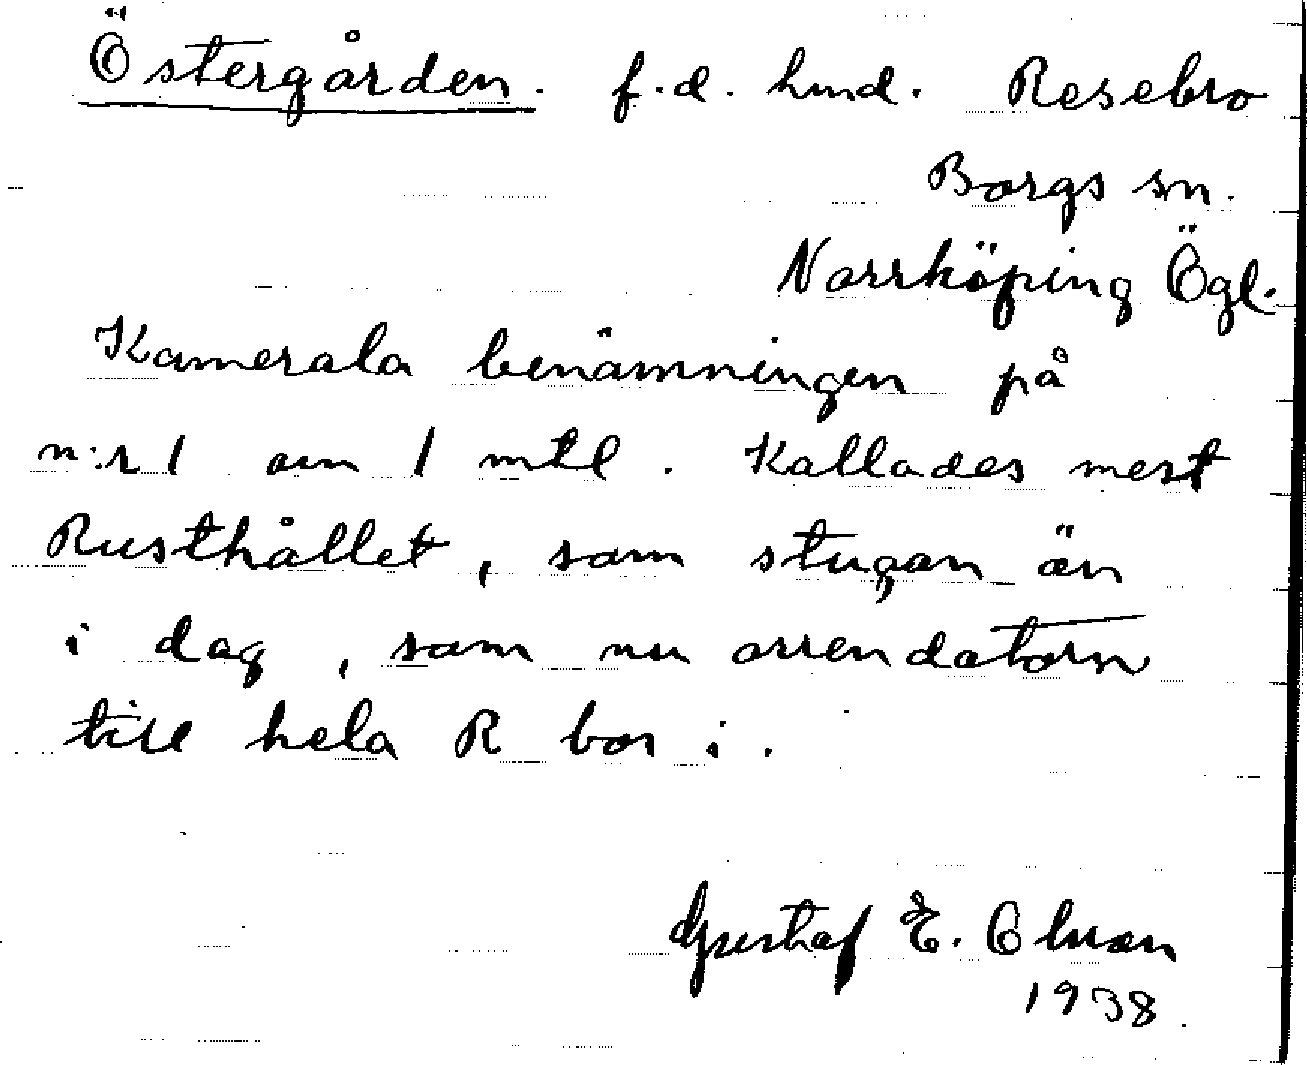 Östergården. f.d. hmd. Resebro
Borgs sn.
Norrköping Ögl.
Kamerala benämningen på
n:r 1 om 1 mtl. Kallades mest
Rusthållet, som stugan än
i dag, som nu arrendatorn
till hela R bor i.
Gustaf E.
1938.